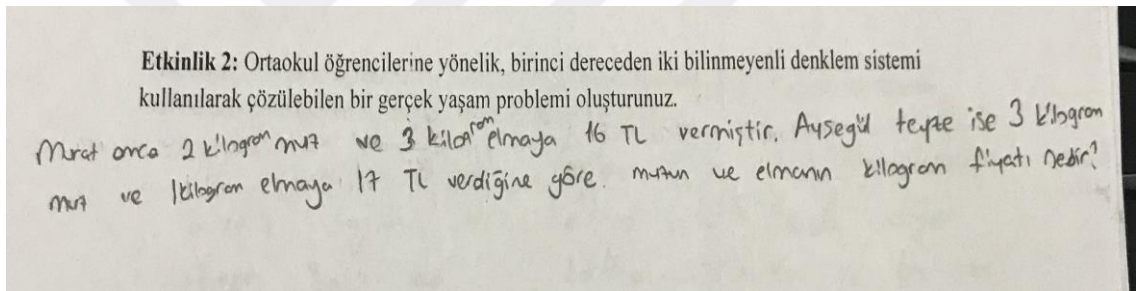 Etkinlik 2: Ortaokul öğrencilerine yönelik, birinci dereceden iki bilinmeyenli denklem sistemi
kullanılarak çözülebilen bir gerçek yaşam problemi oluşturunuz.
Murat amca 2 kilogram muz ve 3 kilogram elmaya 16 TL vermiştir. Ayşegül teyze ise 3 kilogram
muz ve 1 kilogram elmaya 17 TL verdiğine göre. muzun ve elmanın kilogram fiyatı nedir?